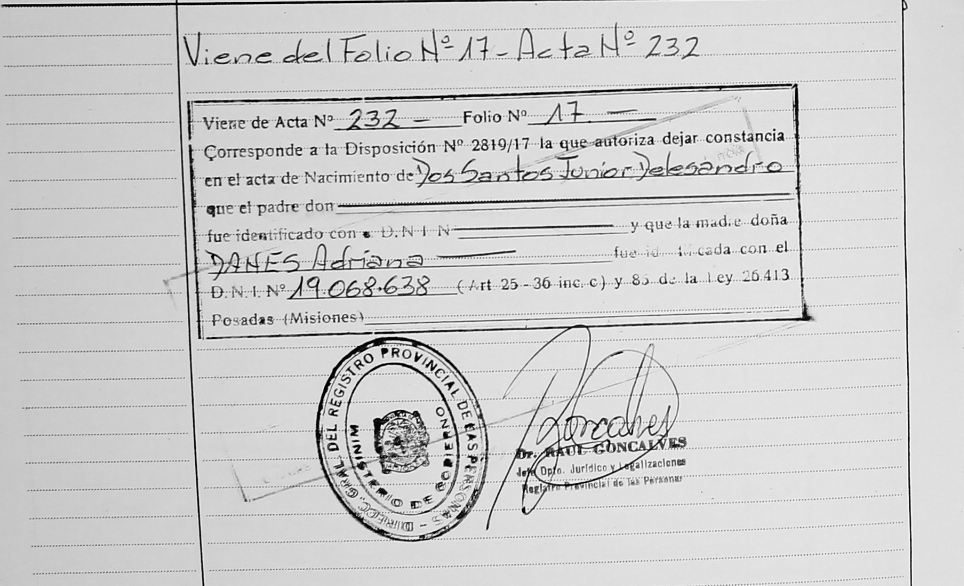 Viene del Folio Nº 17 - Acta Nº 232
Viene de Acta Nº 232 - Folio Nº 17. -
Corresponde a la Disposición Nº 2819/17 la que autoriza dejar constancia
en el acta de Nacimiento de Dos Santos Junior Delesandro
que el padre don
fue identificado con D.N.I N y que la madre doña
DANES Adriana fue cada con el
D.N.I. Nº 19.068.638 (Art 25 - 36 inc. c) y 85 de la Ley 26.413
Posadas (Misiones)
DIRECC. GRAL. DEL REGISTRO PROVINCIAL DE LAS PERSONAS -
MINISTERIO DE GOBIERNO
Goncalves
Dr. RAUL GONCALVES
Jefe Dpto. Jurídico y Legalizaciones
Registro Provincial de las Personas